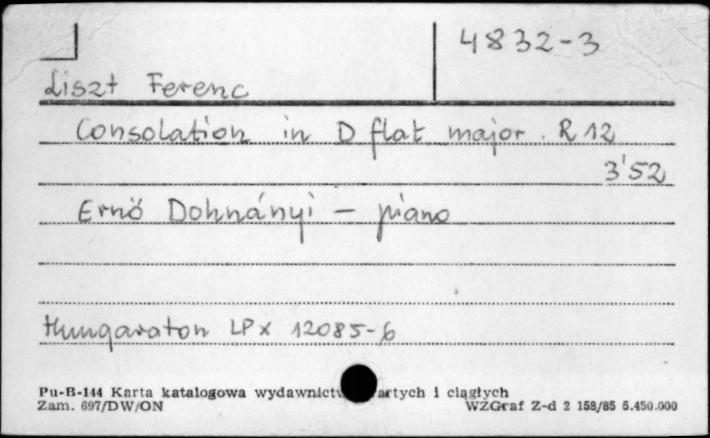 4832-3
Liszt Ferenc
Consolation in D flat major. R 12
3'52
Ernö Dohnányi - piano
Hungaroton LPX 12085-6
Pu-B-144 Karta katalogowa wydawnictw artych i ciągłych
Zam. 697/DW/ON WZGraf Z-d 2 158/85 5.450.000